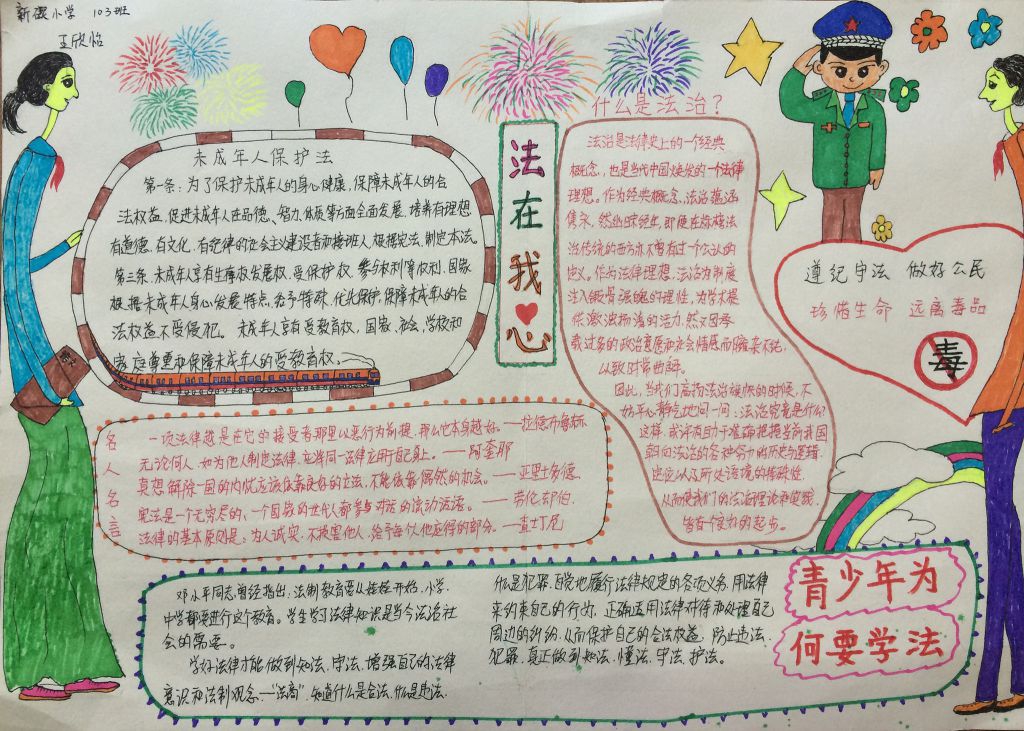 新碶小学 103班
王欣怡
未成年人保护法
第一条:为了保护未成年人的身心健康,保障未成年人的合
法权益,促进未成年人在品德、智力、体质等方面全面发展,培养有理想,
有道德、有文化、有纪律的社会主义建设者和接班人,根据宪法,制定本法。
第三条,未成年人享有生存权发展权、受保护权、参与权利等权利,国家
根据未成年人身心发展特点,给予特殊、优先保护,保障未成年人的合
法权益不受侵犯。未成年人享有受教育权,国家、社会、学校和
家庭尊重和保障未成年人的受教育权。
法在我心
什么是法治?
法治是法律史上的一个经典
概念,也是当代中国焕发的一个法律
理想。作为经典概念,法治蕴涵
定义。作为法律理想,法治为制度
注入傲骨强魄的理性,为学术提
供激浊扬清的活力,然又因承
载过多的政治意愿和社会情感而臃杂不纯,
以致时常曲解。
因此,当我们高扬法治旗帜的时候,不
妨平心静气地问一问:法治究竟是什么?
这样,或许有助于准确把握当前我国
朝向法治的各种努力的历史与逻辑
定位以及所处语境的
从而使我们的法治理论和实践,
遵纪守法 做好公民
珍惜生命 远离毒品
毒
名人名言
一项法律越是在它的接受者那里以恶行为前提,那么它本身越好。——拉德布鲁赫
无论何人,如为他人制定法律,应将同一法律应用于自己身上。——阿奎那
真想解除一国的内忧应该依靠良好的立法,不能依靠偶然的机会。——亚里士多德
宪法是一个无穷尽的、一个国家的世代人都参与对话的流动话语。——劳伦却伯
法律的基本原则是:为人诚实,不损害他人,给予每个人他应得的部分。——查士丁尼
邓小平同志曾经指出,法制教育要从娃娃开始,小学,
中学都要进行这个教育。学生学习法律知识是当今法治社
会的需要。
学好法律才能做到知法、守法,增强自己的法律
意识和法制观念——"法商",知道什么是合法,什么是违法,
什么是犯罪,自觉地履行法律规定的各项义务,用法律
来约束自己的行为,正确运用法律对待和处理自己
周边的纠纷,从而保护自己的合法权益,防止违法、
犯罪,真正做到知法、懂法、守法、护法。
青少年为
何要学法